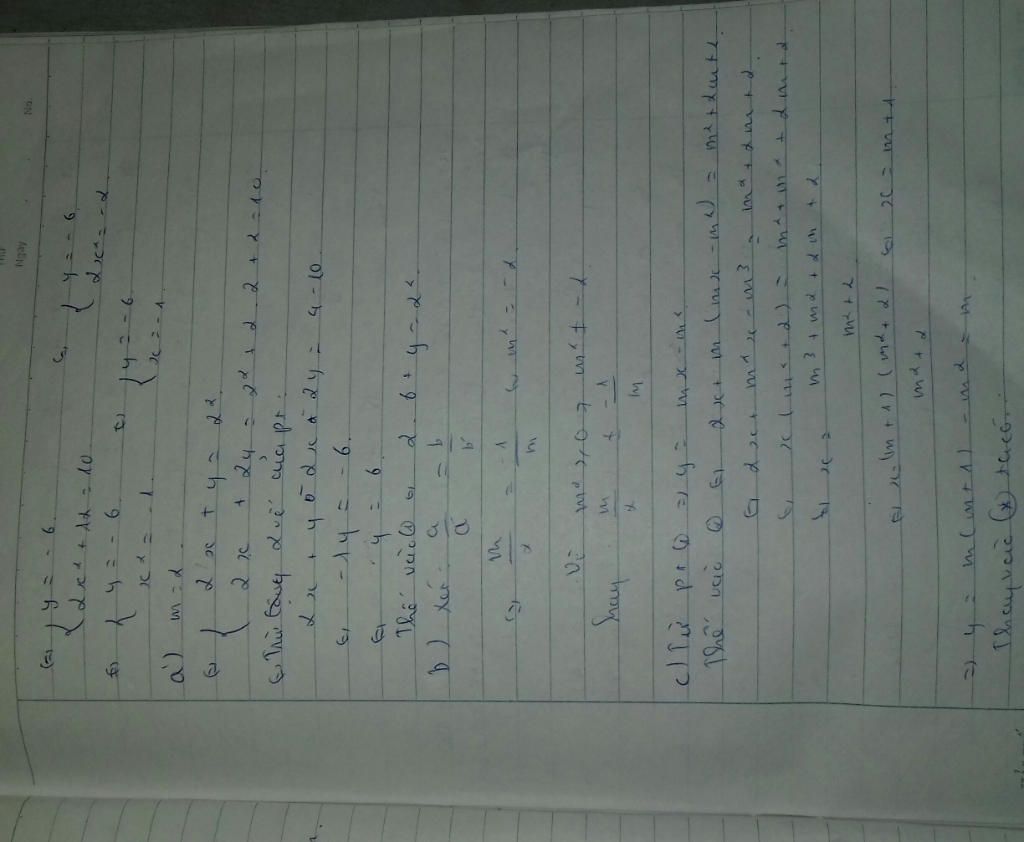 No.
Ngày
⇔ { y = -6
2x² + 12 = 10 ⇔ { y = -6
2x² = -2
⇔ { y = -6
x² = -1 ⇔ { y = -6
x = -1
a) m = 2
⇔ { 2x + y = 2²
2x + 2y = 2² + 2.2 + 2 = 10
2 vế của pt.
2x + y - 2x - 2y = 4 - 10
⇔ -1y = -6
⇔ y = 6
Thế vào ① ⇔ 2. 6 + y = 2²
b) xét a/a' = b/b'
⇒ m/2 = -1/m ⇔ m² = -2
Vì m² ≥ 0 ⇒ m² ≠ -2
m/2 ≠ -1/m
c) Từ pt ① ⇒ y = mx - m²
Thế vào ② ⇔ 2x + m (mx - m²) = m² + 2m + 2
⇔ 2x + m²x - m³ = m² + 2m + 2
⇔ x (m² + 2) = m² + m² + 2m + 2
⇔ x = m³ + m² + 2m + 2 / m² + 2
⇔ x = (m + 1) (m² + 2) / m² + 2 ⇔ x = m + 1
⇒ y = m (m + 1) - m² = m
Thay vào